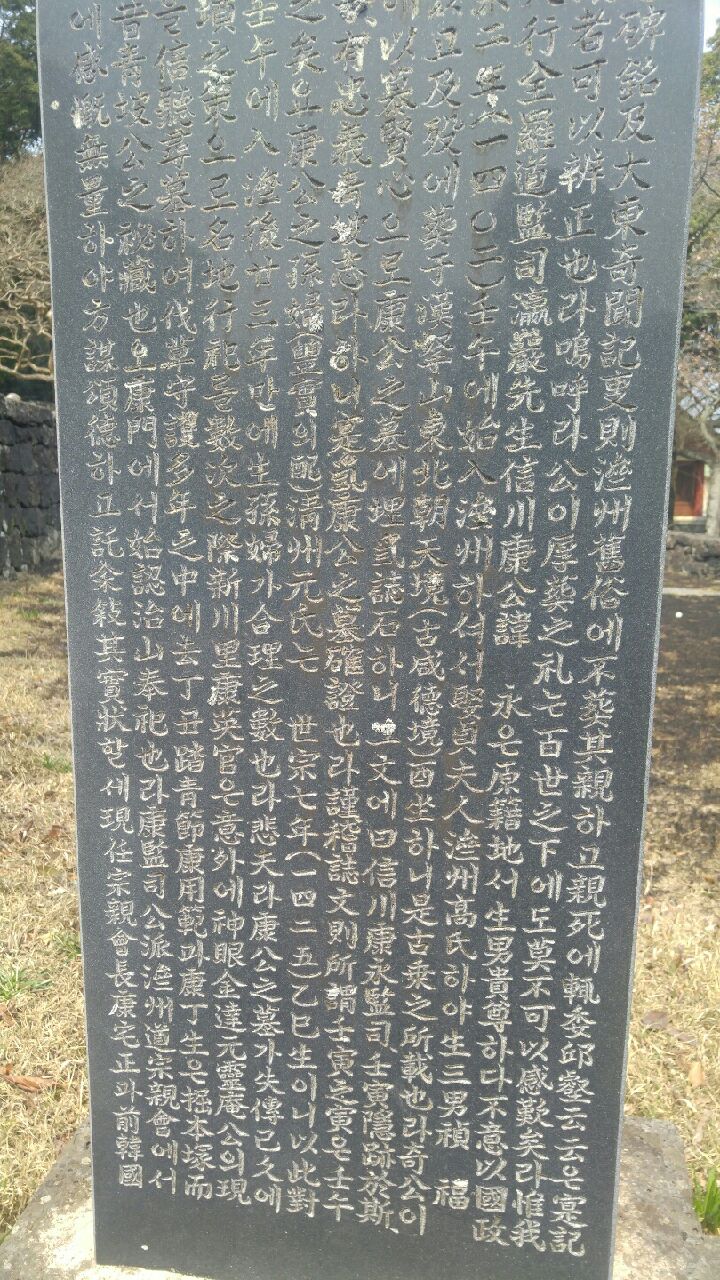 碑銘及大東奇聞記叓則濟州舊俗에不葬其親하고親死에輒委邱壑云云은寔記
者可以辨正也라嗚呼라公이厚葬之礼는百世之下에도莫不可以感歎矣라惟我
行全羅道監司瀛巖先生信川康公諱 永은原籍地서生男貴尊하다不意以國政
二年(一四〇二)壬午에始入濟州하셔서娶貞夫人濟州高氏하야生三男禎 福
且及歿에葬于漢拏山東北朝天境(古咸德境)酉坐하니是古乘之所載也라奇公이
以慕賢心으로康公之墓에埋 誌石하니 文에曰信川康永監司壬寅隱跡於斯
有忠義靑坡志라하니寔 康公之墓確證也라謹稽誌文則所謂壬寅之寅은壬午
之矣요康公之孫婦(豐實의配)淸州元氏는 世宗七年(一四二五)乙巳生이니以此對
壬午에入濟後廿三年만에生孫婦가合理之數也라悲夫라康公之墓가失傳已久에
墳之東으로已名地行祀를數次之際新川里康英官은意外에神眼金達元靈庵公의現
信聽尋墓하여伐草守護多年之中에去丁丑踏靑節康用範과康丁生은掘本塚而
昔靑坡公之祕藏也요康門에서始認治山奉祀也라康監司公派濟州道宗親會에서
에感慨無量하야方謀頌德하고託余敍其實狀할세現任宗親會長康宅正과前韓國